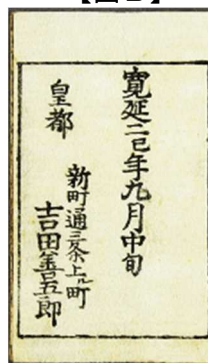 寛延二巳年九月中旬
皇都
新町通三条上ル町
吉田善五郎